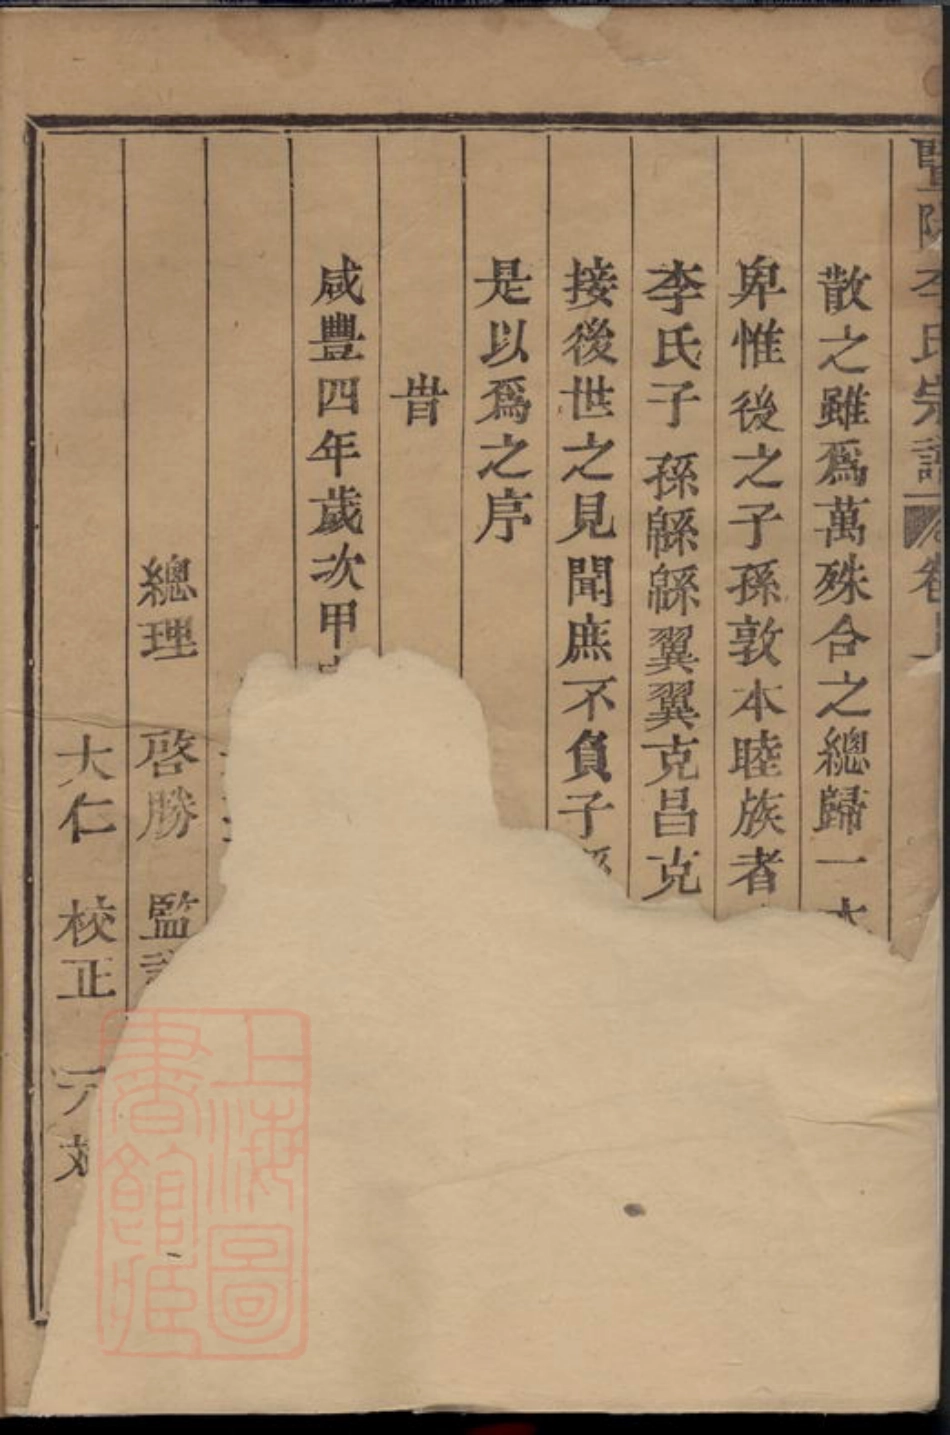 暨陽李氏宗譜 卷上
散之雖爲萬殊合之總歸一本
卑惟後之子孫敦本睦族者
李氏子孫緜緜翼翼克昌克
接後世之見聞庶不負子孫
是以爲之序
旹
咸豐四年歲次甲寅
總理 啓勝 監
大仁 校正
上海圖書館藏